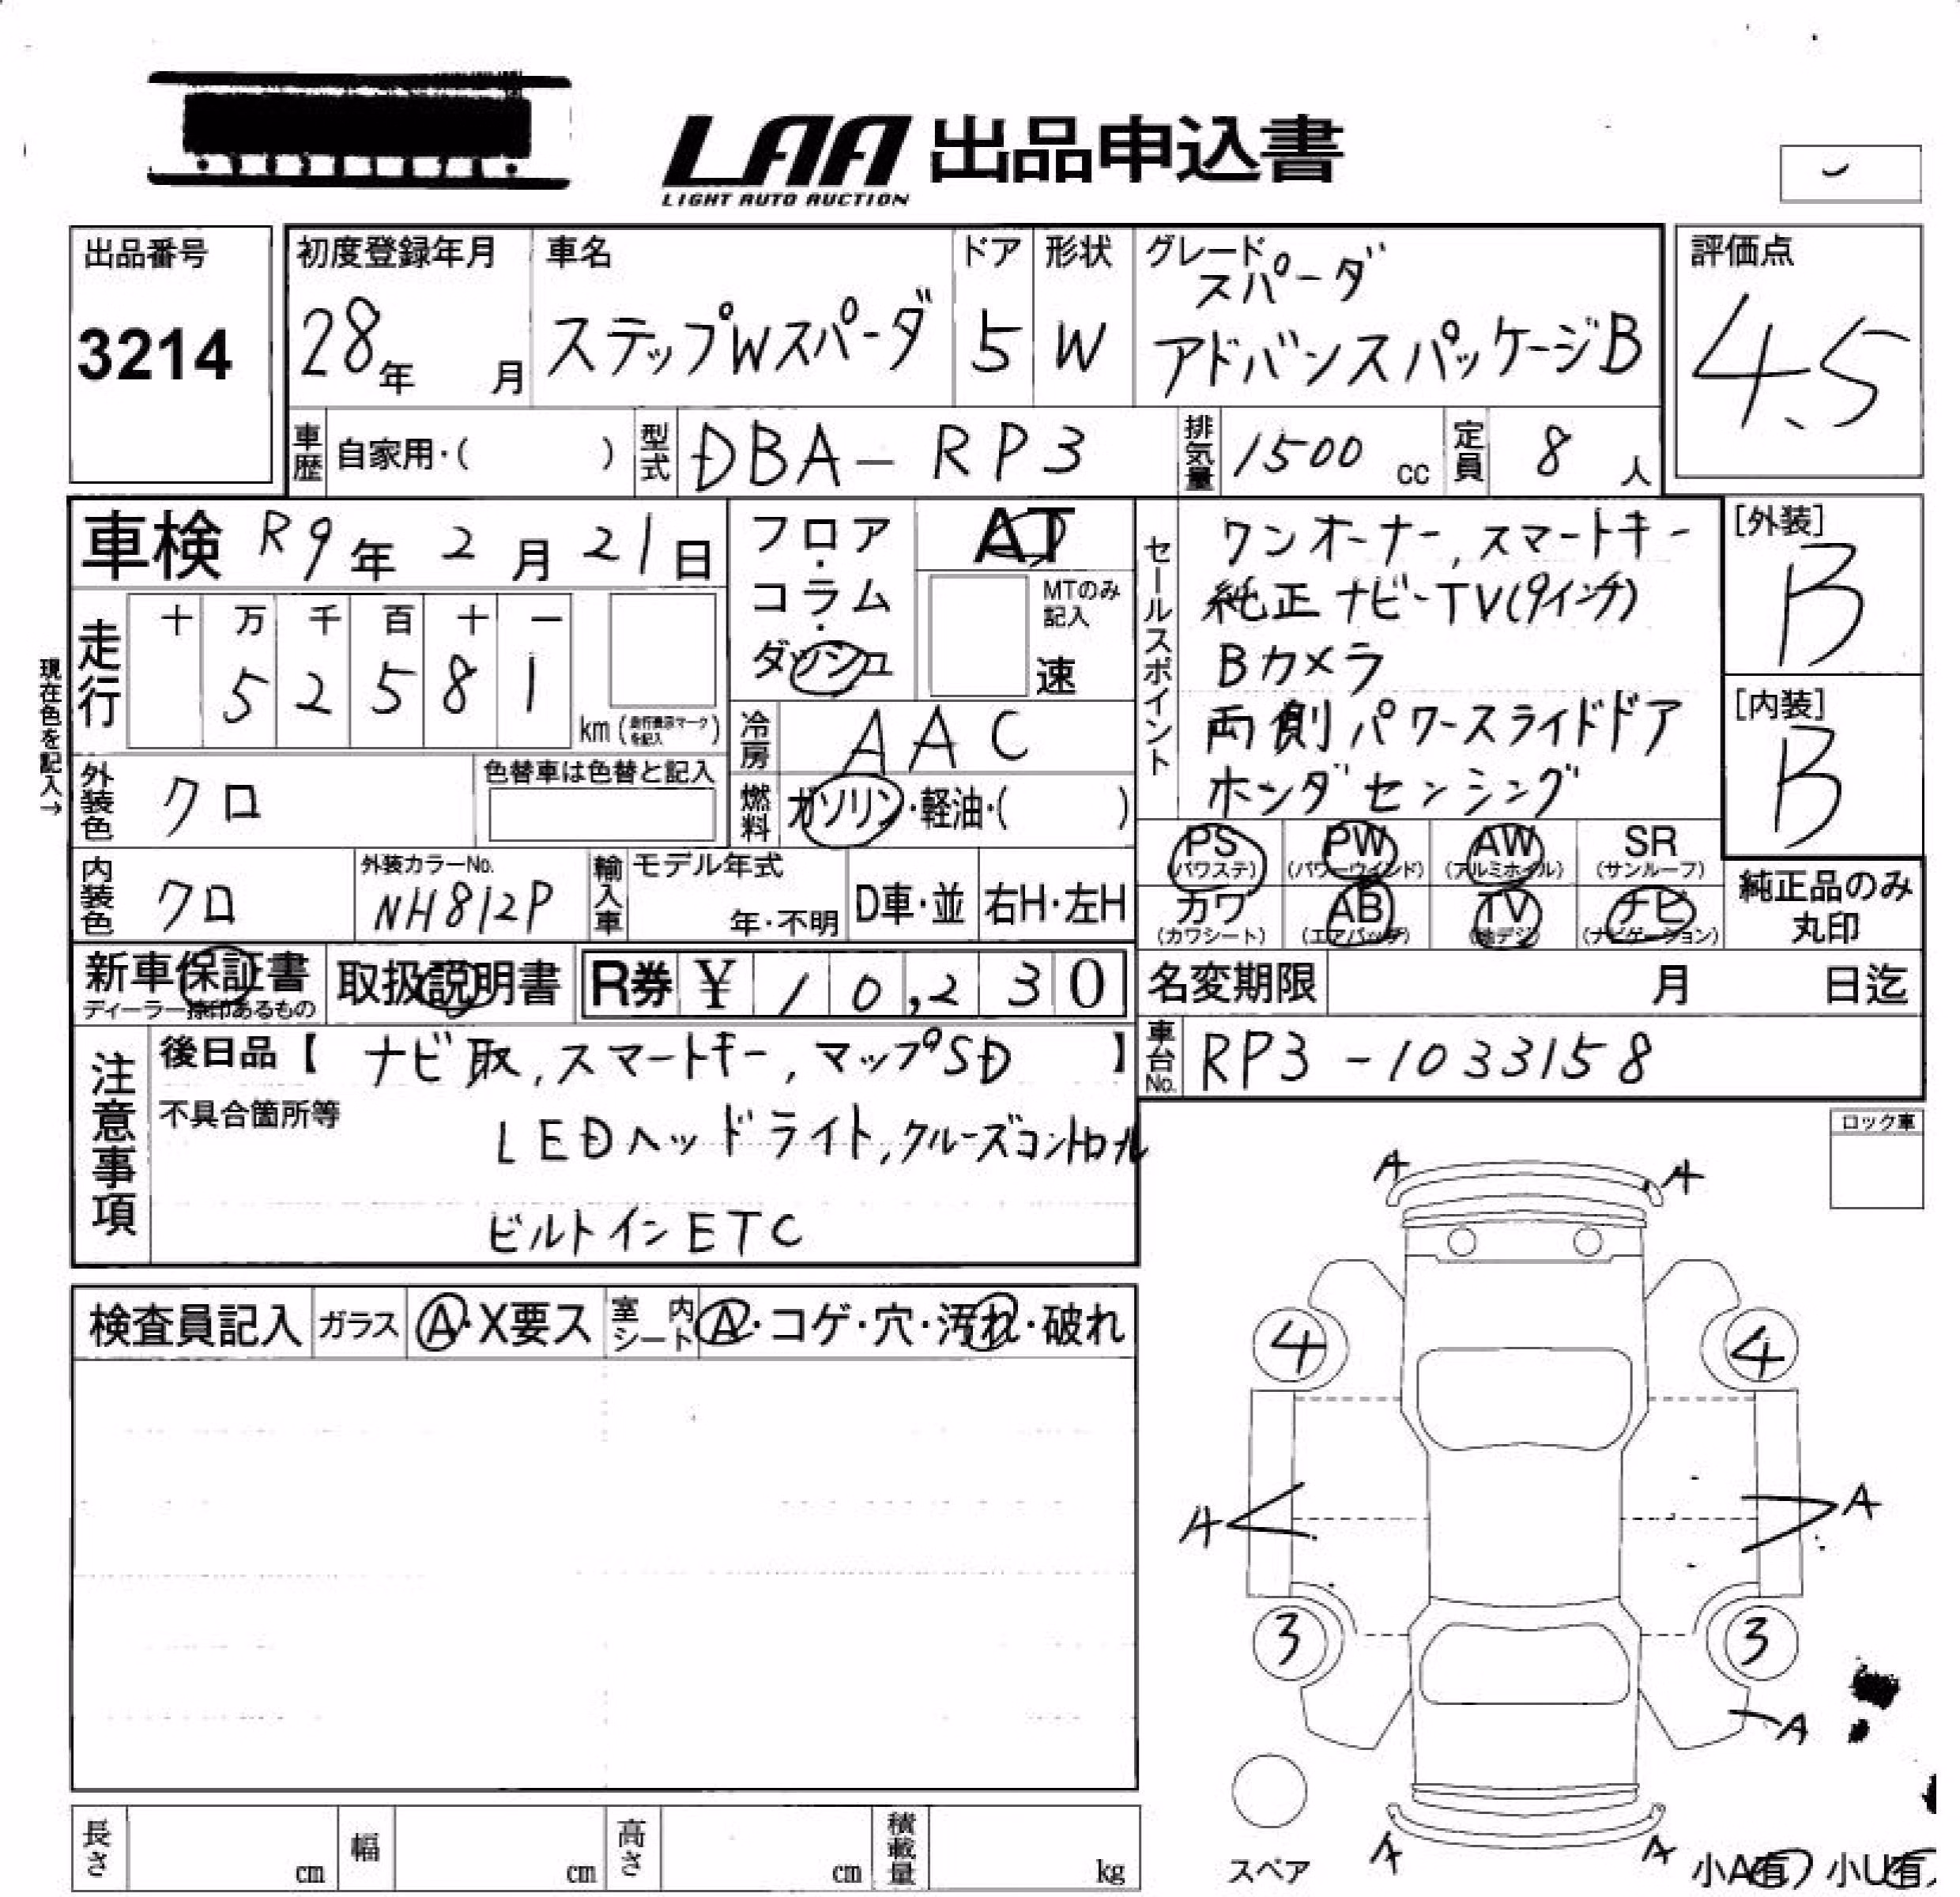 LAA 出品申込書
LIGHT AUTO AUCTION
出品番号
3214
初度登録年月
28年 月
車名
ステップWスパーダ
ドア
5
形状
W
グレード
スパーダ
アドバンスパッケージB
評価点
4.5
車歴 自家用・( )
型式 DBA-RP3
排気量 1500 cc
定員 8 人
車検 R9年 2月 21日
現在色を記入→
走行
十 万 千 百 十 一
5 2 5 8 1
km (走行表示マークを記入)
フロア・コラム・ダッシュ
AT
MTのみ記入
速
冷房 AAC
燃料 ガソリン・軽油・( )
外装色 クロ
色替車は色替と記入
内装色 クロ
外装カラーNo.
NH812P
輸入車
モデル年式
年・不明
D車・並
右H・左H
セールスポイント
ワンオーナー, スマートキー
純正ナビ-TV(9インチ)
Bカメラ
両側パワースライドドア
ホンダセンシング
[外装]
B
[内装]
B
PS (パワステ)
PW (パワーウインド)
AW (アルミホイル)
SR (サンルーフ)
カワ (カワシート)
AB (エアバッグ)
TV (地デジ)
ナビ (ナビゲーション)
純正品のみ
丸印
新車保証書
ディーラー捺印あるもの
取扱説明書
R券 ¥ 10,230
名変期限 月 日迄
車台No. RP3-1033158
注意事項
後日品【 ナビ取, スマートキー, マップSD 】
不具合箇所等
LEDヘッドライト, クルーズコントロール
ビルトインETC
ロック車
検査員記入
ガラス A・X要ス
室内シート A・コゲ・穴・汚れ・破れ
A A
4 4
A A
3 3
A
A A
スペア
小A有 小U有
長さ cm
幅 cm
高さ cm
積載量 kg